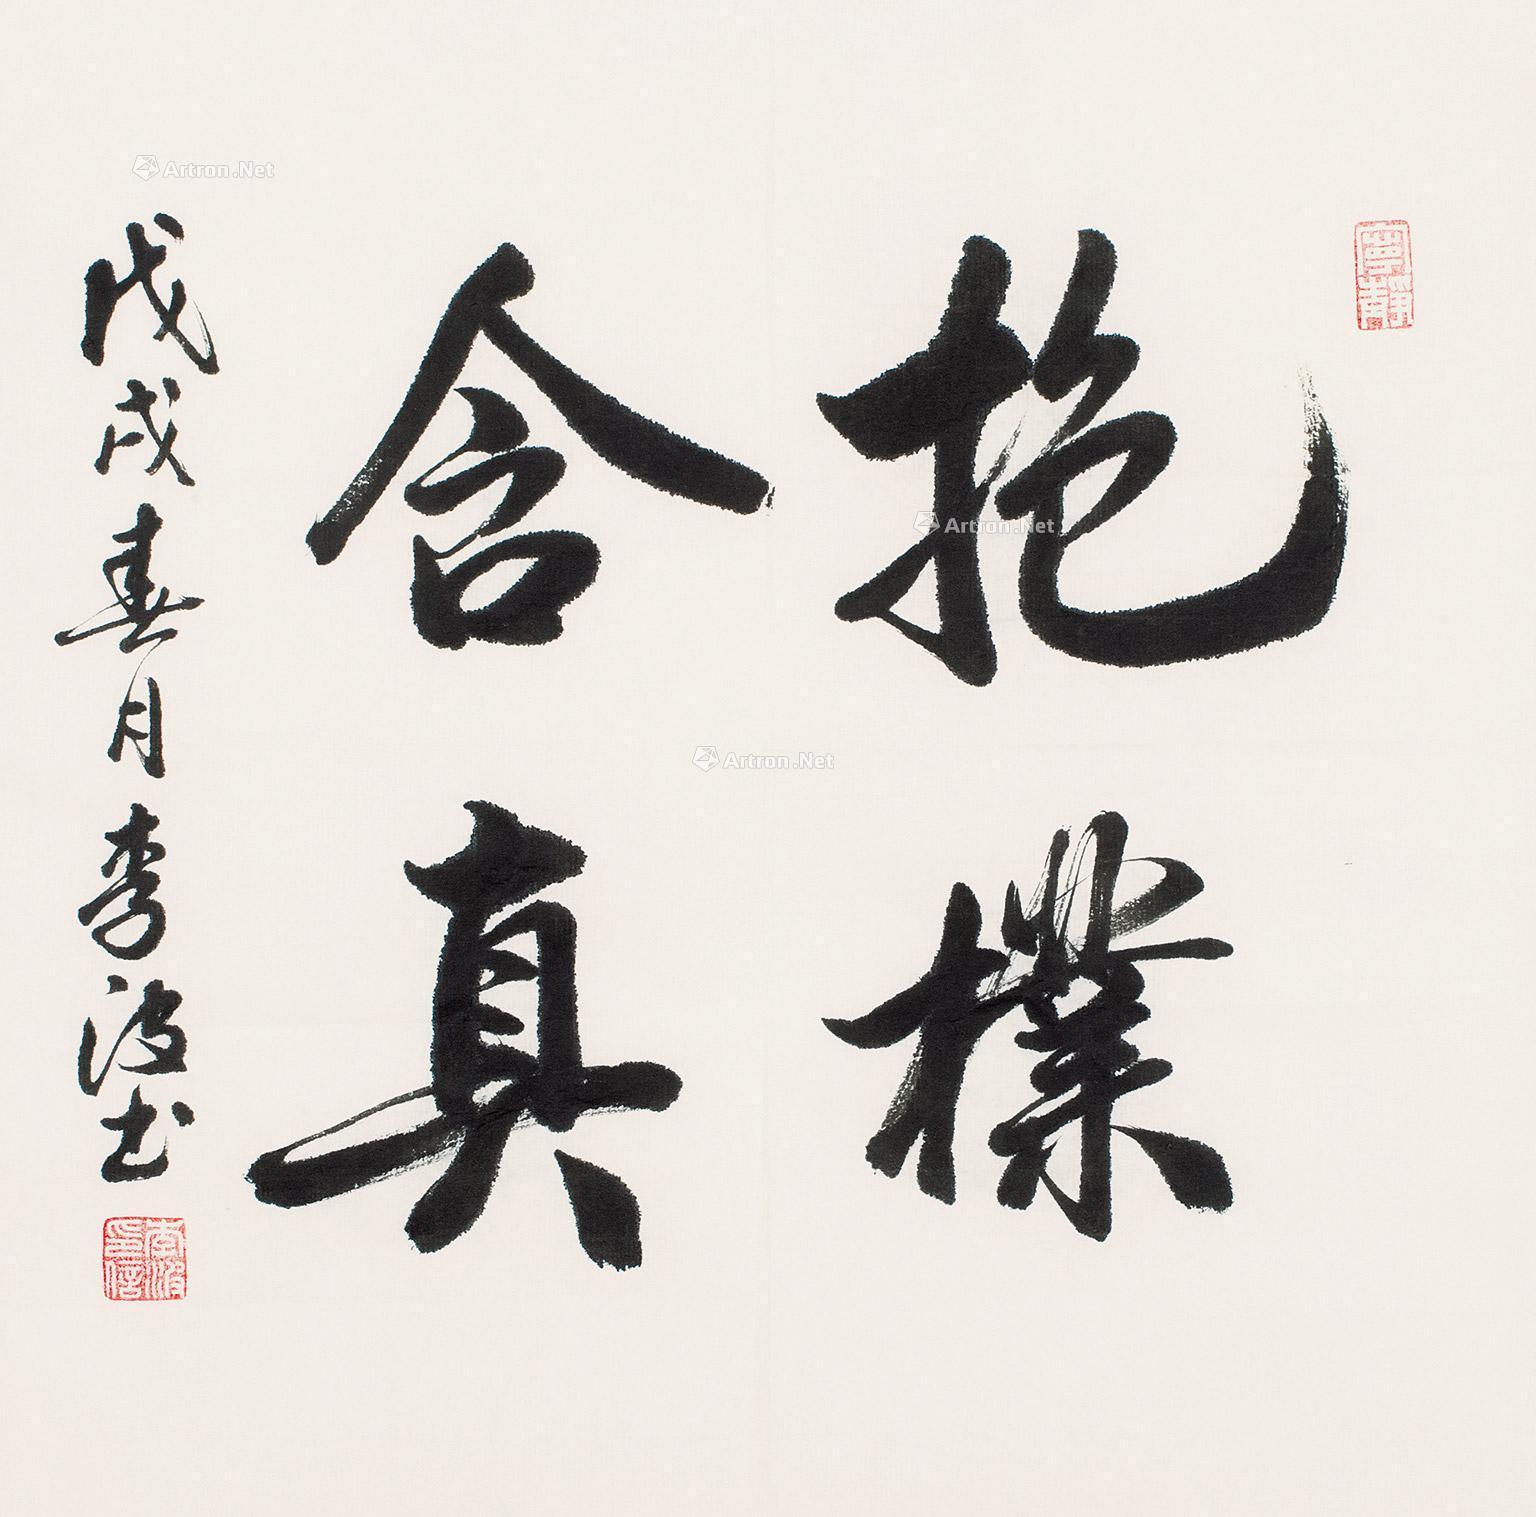 抱樸
含真
戊戌春月李波书
寧靜
李波印信
Artron.Net
Artron.Net
Artron.Net